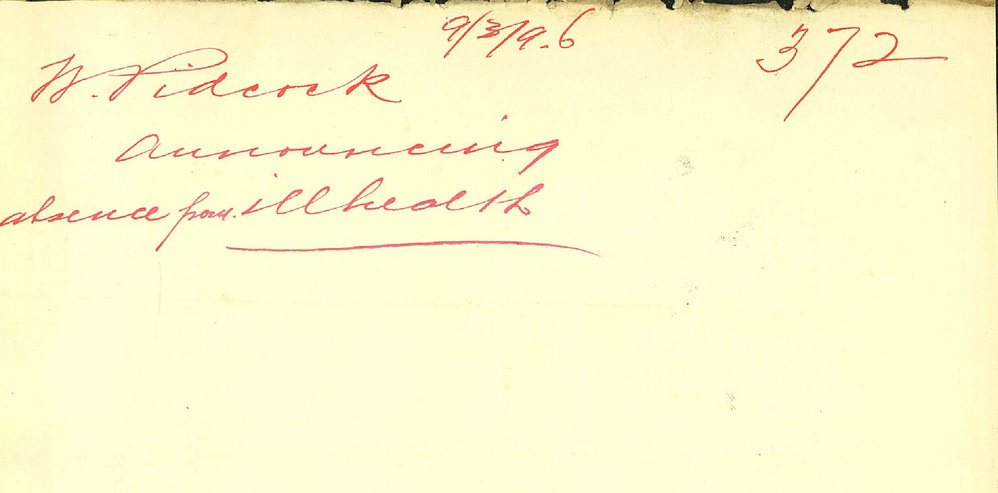 9/3/9.6
372
W. Pidcock
announcing
absence from illhealth